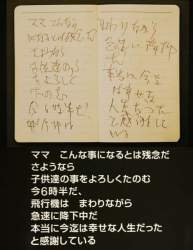 ママ こんな
事になるとは残念だ
さようなら
子供達の事
をよろしく
たのむ
今6時半だ
飛行機は
まわりながら
急速に降下中
だ
本当に今迄
は幸せな
人生だった
と感謝して
いる
ママ こんな事になるとは残念だ
さようなら
子供達の事をよろしくたのむ
今6時半だ、
飛行機は まわりながら
急速に降下中だ
本当に今迄は幸せな人生だった
と感謝している